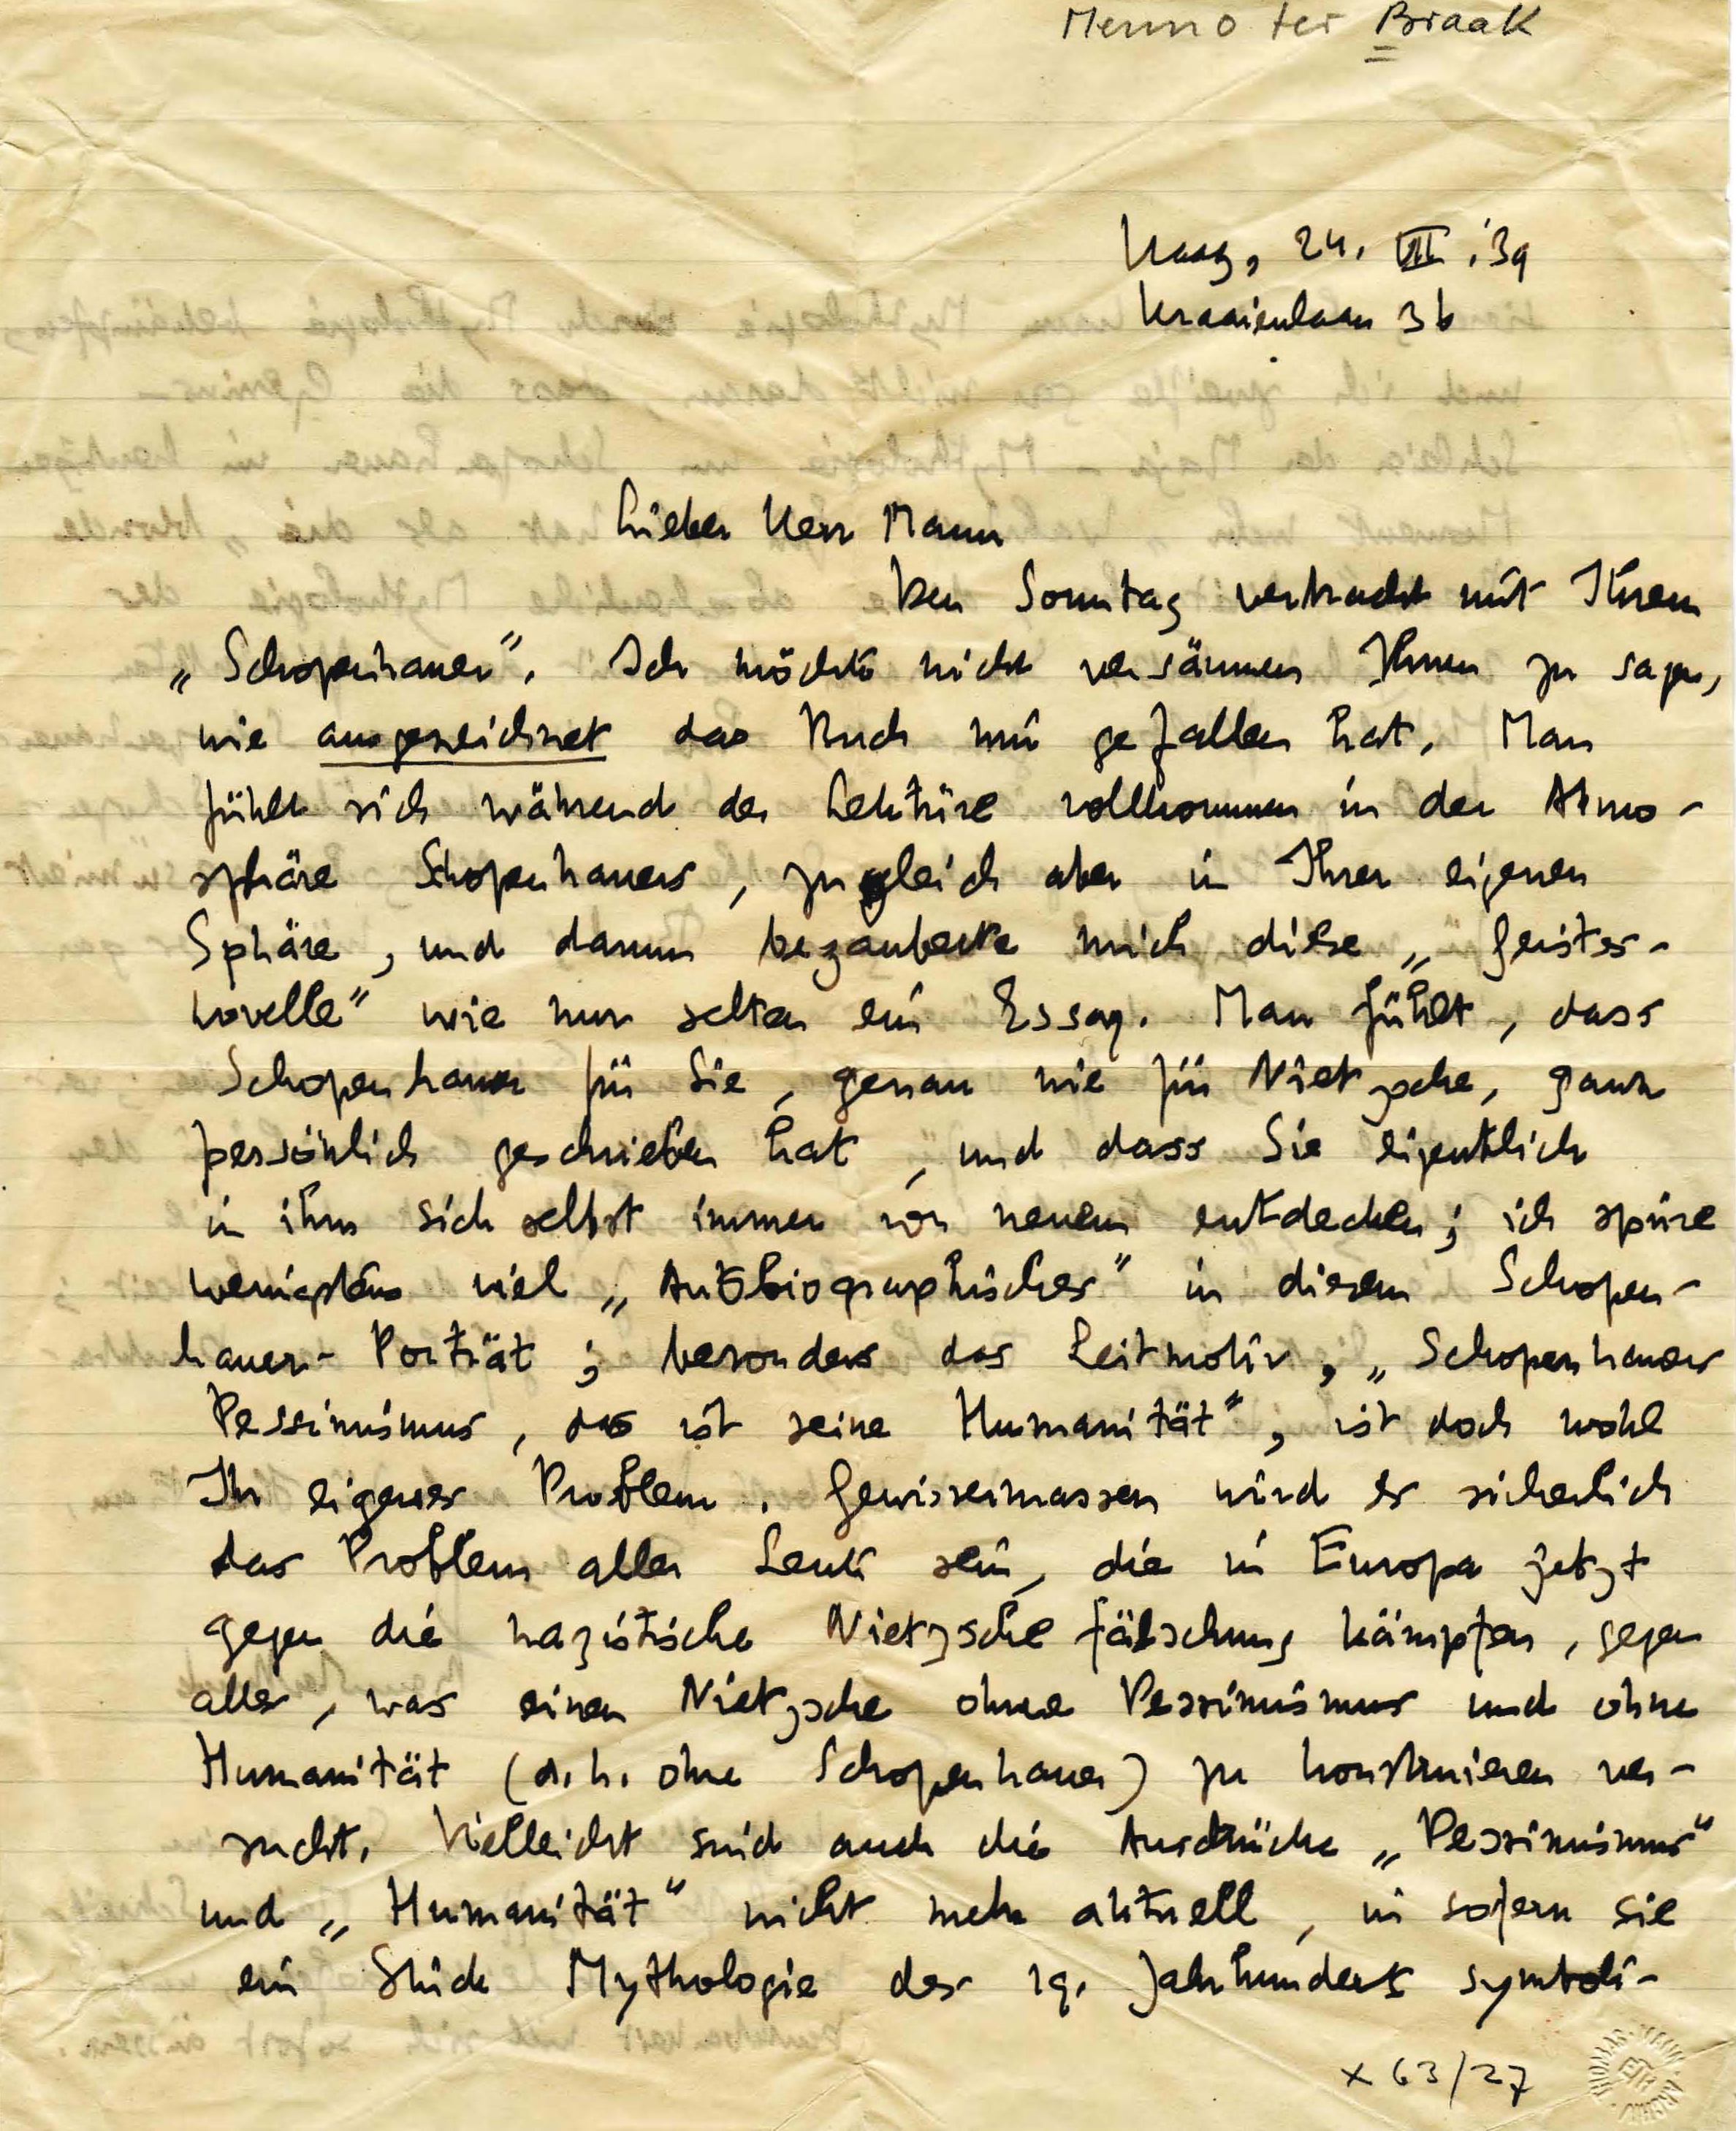 Menno ter Braak
Haag, 24. VII. '39
Kraaienlaan 36
Lieber Herr Mann
Den Sonntag verbracht mit Ihrem
„Schopenhauer". Ich möchte nicht versäumen Ihnen zu sagen,
wie ausgezeichnet das Buch mir gefallen hat. Man
fühlt sich während der Lektüre vollkommen in der Atmo-
sphäre Schopenhauers, zugleich aber in Ihrer eigenen
Sphäre, und darum bezauberte mich diese „Geister-
novelle" wie nur selten ein Essay. Man fühlt, dass
Schopenhauer für Sie, genau wie für Nietzsche, ganz
persönlich geschrieben hat, und dass Sie eigentlich
in ihm sich selbst immer von neuem entdecken; ich spüre
wenigstens viel „Autobiographisches" in diesem Schopen-
hauer-Porträt; besonders das Leitmotiv, „Schopenhauers
Pessimismus, das ist seine Humanität", ist doch wohl
Ihr eigenes Problem. Gewissermassen wird es sicherlich
das Problem aller Leute sein, die in Europa jetzt
gegen die nazistische Nietzschefälschung kämpfen, gegen
alles, was einen Nietzsche ohne Pessimismus und ohne
Humanität (d.h. ohne Schopenhauer) zu konstruieren ver-
sucht. Vielleicht sind auch die Ausdrücke „Pessimismus"
und „Humanität" nicht mehr aktuell, in sofern sie
ein Stück Mythologie des 19. Jahrhunderts symboli-
x 63/27
THOMAS-MANN-ARCHIV
ETH